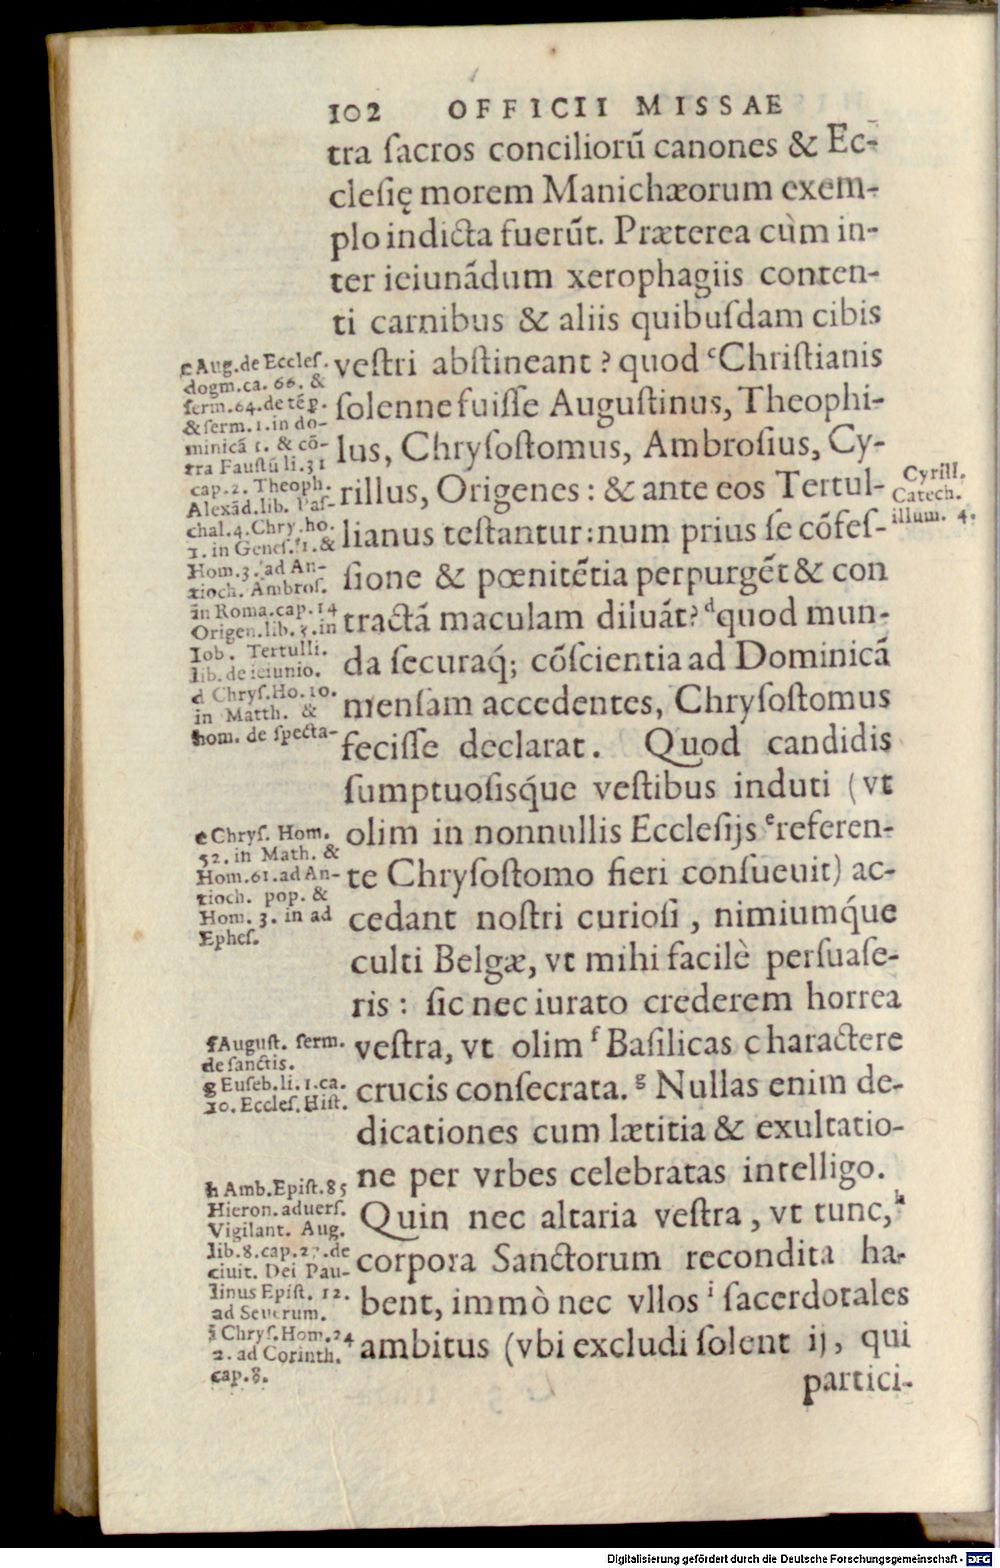 102 OFFICII MISSAE
tra ſacros conciliorũ canones & Ec-
cleſię morem Manichæorum exem-
plo indicta fuerũt. Præterea cùm in-
ter ieiunãdum xerophagiis conten-
ti carnibus & aliis quibuſdam cibis
veſtri abſtineant? quod ᶜChriſtianis
ſolenne fuiſſe Auguſtinus, Theophi-
lus, Chryſoſtomus, Ambroſius, Cy-
rillus, Origenes: & ante eos Tertul-
lianus teſtantur: num prius ſe cõfeſ-
ſione & pœnitẽtia perpurgẽt & con
tractã maculam diluãt? ᵈquod mun-
da ſecuraq́; cõſcientia ad Dominicã
menſam accedentes, Chryſoſtomus
feciſſe declarat. Quod candidis
ſumptuoſisq́ue veſtibus induti (vt
olim in nonnullis Eccleſijs ᵉreferen-
te Chryſoſtomo fieri conſueuit) ac-
cedant noſtri curioſi, nimiumq́ue
culti Belgæ, vt mihi facilè perſuaſe-
ris: ſic nec iurato crederem horrea
veſtra, vt olim ᶠ Baſilicas charactere
crucis conſecrata. ᵍ Nullas enim de-
dicationes cum lætitia & exultatio-
ne per vrbes celebratas intelligo.
Quin nec altaria veſtra, vt tunc, ʰ
corpora Sanctorum recondita ha-
bent, immò nec vllos ⁱ ſacerdotales
ambitus (vbi excludi ſolent ij, qui
partici-
c Aug. de Eccleſ.
dogm. ca. 66. &
ſerm. 64. de tẽp.
& ſerm. 1. in do-
minicã 1. & cõ-
tra Fauſtũ li. 31
cap. 2. Theoph.
Alexãd. lib. Paſ-
chal. 4. Chry. ho.
1. in Geneſ. 1. &
Hom. 3. ad An-
tioch. Ambroſ.
in Roma. cap. 14
Origen. lib. 3. in
Iob. Tertulli.
lib. de ieiunio.
d Chryſ. Ho. 10.
in Matth. &
hom. de ſpecta-
Cyrill.
Catech.
illum. 4.
e Chryſ. Hom.
52. in Math. &
Hom. 61. ad An-
tioch. pop. &
Hom. 3. in ad
Epheſ.
f Auguſt. ſerm.
de ſanctis.
g Euſeb. li. 1. ca.
10. Eccleſ. Hiſt.
h Amb. Epiſt. 85
Hieron. aduerſ.
Vigilant. Aug.
lib. 8. cap. 27. de
ciuit. Dei Pau-
linus Epiſt. 12.
ad Seuerum.
i Chryſ. Hom. 24
2. ad Corinth.
cap. 8.
Digitalisierung gefördert durch die Deutsche Forschungsgemeinschaft - DFG